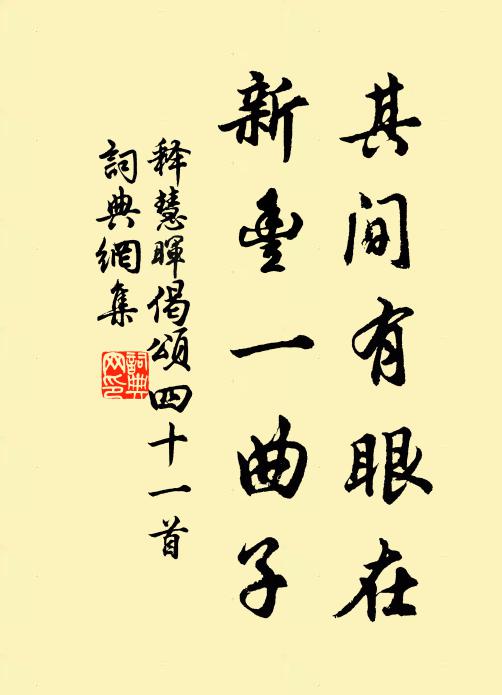 其间有眼在
新豊一曲子
释慧暉偈頌四十一首
詞典網集
詞典网印